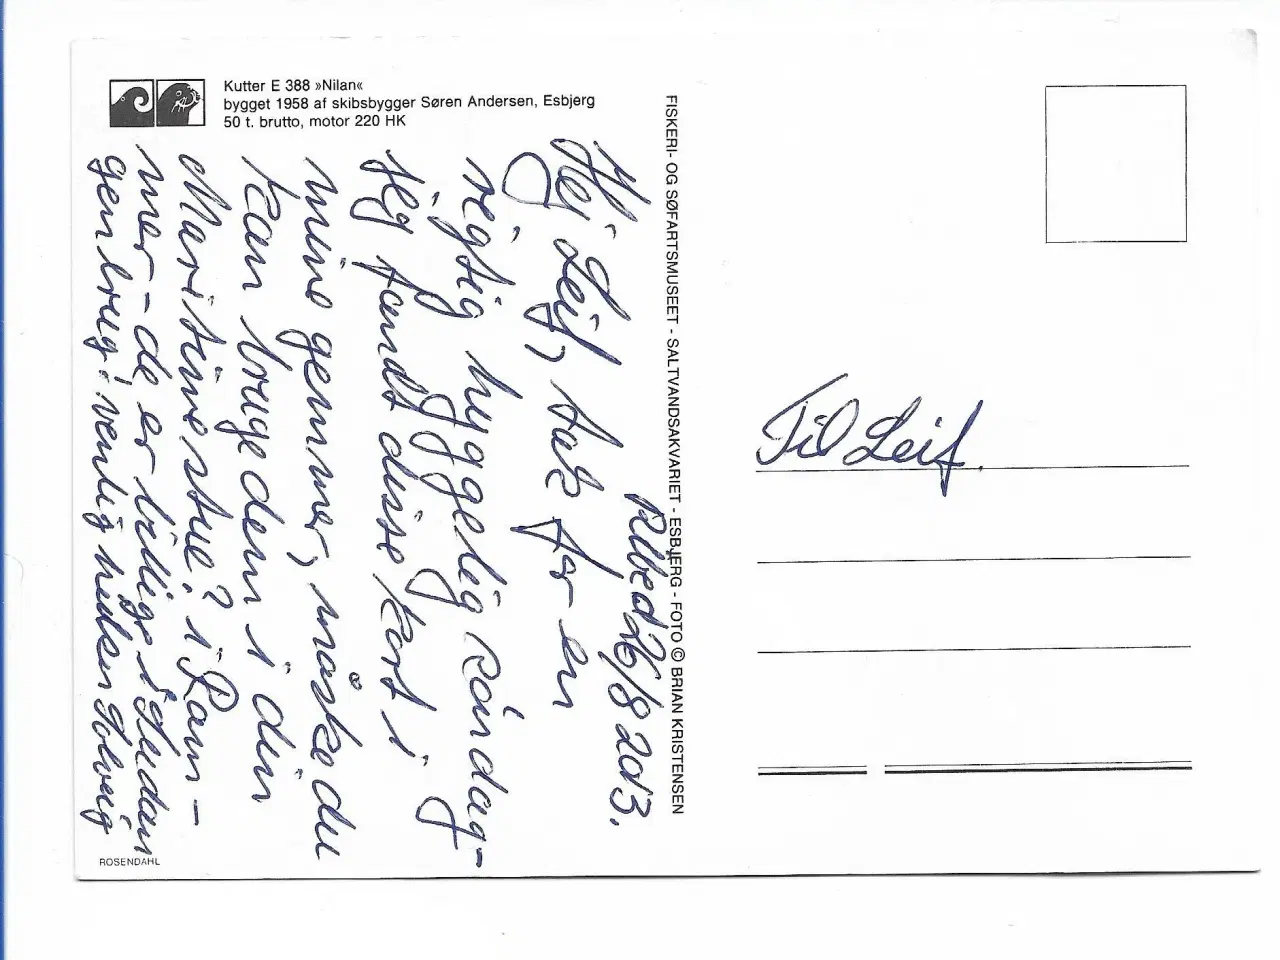 Kutter E 388 »Nilan«
bygget 1958 af skibsbygger Søren Andersen, Esbjerg
50 t. brutto, motor 220 HK
FISKERI- OG SØFARTSMUSEET - SALTVANDSAKVARIET - ESBJERG - FOTO © BRIAN KRISTENSEN
26/8 2013.
Hej Leif, tak for en
rigtig hyggelig søndag-
jeg fandt disse kort i
mine gemmer, måske du
kan bruge dem i din
Maritime stue? i Ram-
mer - de er billige i
genbrug! venlig hilsen Solveig
Til Leif.
ROSENDAHL